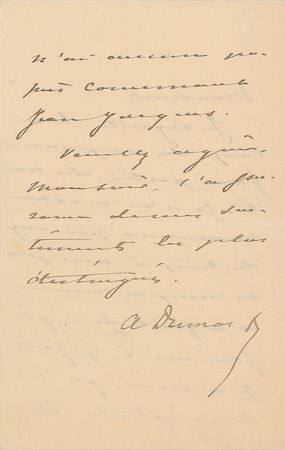 n'ai aucun pa-
pier concernant
Jean Jacques.
Veuillez agréer,
Monsieur, l'assu-
rance de mes sen-
timents les plus
distingués.
A Dumas f